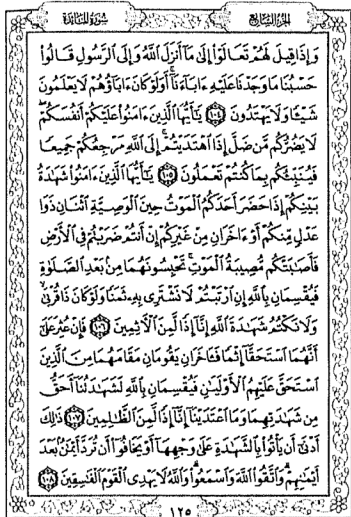 الجزء السابع
سورة المائدة
وَإِذَا قِيلَ لَهُمْ تَعَالَوْا۟ إِلَىٰ مَآ أَنزَلَ ٱللَّهُ وَإِلَى ٱلرَّسُولِ قَالُوا۟
حَسْبُنَا مَا وَجَدْنَا عَلَيْهِ ءَابَآءَنَآ أَوَلَوْ كَانَ ءَابَآؤُهُمْ لَا يَعْلَمُونَ
شَيْـًٔا وَلَا يَهْتَدُونَ ١٠٤ يَـٰٓأَيُّهَا ٱلَّذِينَ ءَامَنُوا۟ عَلَيْكُمْ أَنفُسَكُمْ
لَا يَضُرُّكُم مَّن ضَلَّ إِذَا ٱهْتَدَيْتُمْ إِلَى ٱللَّهِ مَرْجِعُكُمْ جَمِيعًا
فَيُنَبِّئُكُم بِمَا كُنتُمْ تَعْمَلُونَ ١٠٥ يَـٰٓأَيُّهَا ٱلَّذِينَ ءَامَنُوا۟ شَهَـٰدَةُ
بَيْنِكُمْ إِذَا حَضَرَ أَحَدَكُمُ ٱلْمَوْتُ حِينَ ٱلْوَصِيَّةِ ٱثْنَانِ ذَوَا
عَدْلٍ مِّنكُمْ أَوْ ءَاخَرَانِ مِنْ غَيْرِكُمْ إِنْ أَنتُمْ ضَرَبْتُمْ فِى ٱلْأَرْضِ
فَأَصَـٰبَتْكُم مُّصِيبَةُ ٱلْمَوْتِ تَحْبِسُونَهُمَا مِنۢ بَعْدِ ٱلصَّلَوٰةِ
فَيُقْسِمَانِ بِٱللَّهِ إِنِ ٱرْتَبْتُمْ لَا نَشْتَرِى بِهِۦ ثَمَنًا وَلَوْ كَانَ ذَا قُرْبَىٰ
وَلَا نَكْتُمُ شَهَـٰدَةَ ٱللَّهِ إِنَّآ إِذًا لَّمِنَ ٱلْـَٔاثِمِينَ ١٠٦ فَإِنْ عُثِرَ عَلَىٰٓ
أَنَّهُمَا ٱسْتَحَقَّآ إِثْمًا فَـَٔاخَرَانِ يَقُومَانِ مَقَامَهُمَا مِنَ ٱلَّذِينَ
ٱسْتَحَقَّ عَلَيْهِمُ ٱلْأَوْلَيَـٰنِ فَيُقْسِمَانِ بِٱللَّهِ لَشَهَـٰدَتُنَآ أَحَقُّ
مِن شَهَـٰدَتِهِمَا وَمَا ٱعْتَدَيْنَآ إِنَّآ إِذًا لَّمِنَ ٱلظَّـٰلِمِينَ ١٠٧ ذَٰلِكَ
أَدْنَىٰٓ أَن يَأْتُوا۟ بِٱلشَّهَـٰدَةِ عَلَىٰ وَجْهِهَآ أَوْ يَخَافُوٓا۟ أَن تُرَدَّ أَيْمَـٰنٌۢ بَعْدَ
أَيْمَـٰنِهِمْ وَٱتَّقُوا۟ ٱللَّهَ وَٱسْمَعُوا۟ وَٱللَّهُ لَا يَهْدِى ٱلْقَوْمَ ٱلْفَـٰسِقِينَ ١٠٨
١٢٥